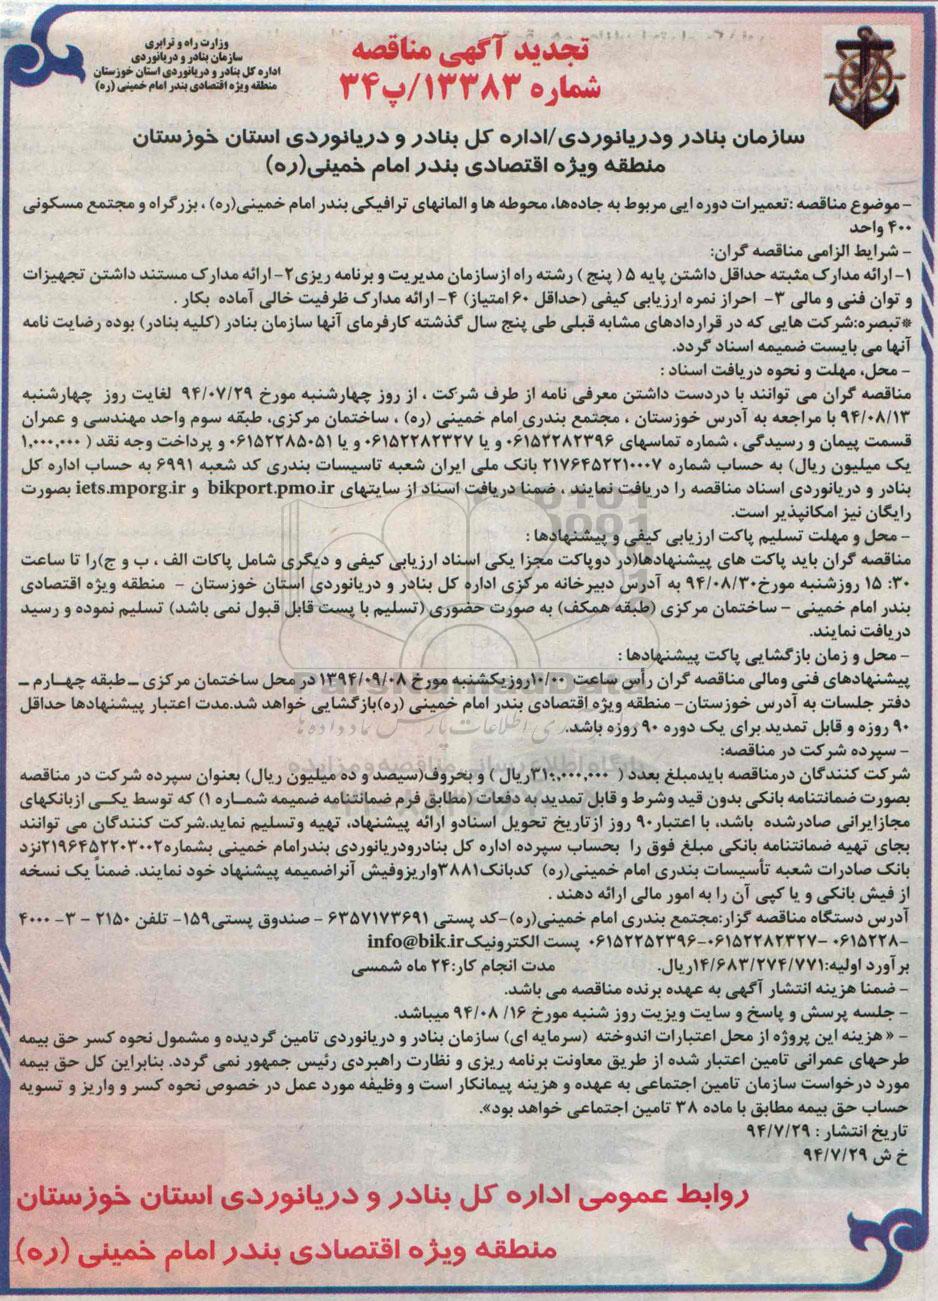 وزارت راه و ترابری
سازمان بنادر و دریانوردی
اداره کل بنادر و دریانوردی استان خوزستان
منطقه ویژه اقتصادی بندر امام خمینی (ره)
تجدید آگهی مناقصه
شماره ۱۳۳۸۳/پ۳۴
سازمان بنادر ودریانوردی/اداره کل بنادر و دریانوردی استان خوزستان
منطقه ویژه اقتصادی بندر امام خمینی(ره)
- موضوع مناقصه :تعمیرات دوره ایی مربوط به جاده‌ها، محوطه ها و المانهای ترافیکی بندر امام خمینی(ره) ، بزرگراه و مجتمع مسکونی
۴۰۰ واحد
- شرایط الزامی مناقصه گران:
۱- ارائه مدارک مثبته حداقل داشتن پایه ۵ ( پنج ) رشته راه ازسازمان مدیریت و برنامه ریزی ۲- ارائه مدارک مستند داشتن تجهیزات
و توان فنی و مالی ۳- احراز نمره ارزیابی کیفی (حداقل ۶۰ امتیاز) ۴- ارائه مدارک ظرفیت خالی آماده بکار .
*تبصره:شرکت هایی که در قراردادهای مشابه قبلی طی پنج سال گذشته کارفرمای آنها سازمان بنادر (کلیه بنادر) بوده رضایت نامه
آنها می بایست ضمیمه اسناد گردد.
- محل، مهلت و نحوه دریافت اسناد :
مناقصه گران می توانند با دردست داشتن معرفی نامه از طرف شرکت ، از روز چهارشنبه مورخ ۹۴/۰۷/۲۹ لغایت روز چهارشنبه
۹۴/۰۸/۱۳ با مراجعه به آدرس خوزستان ، مجتمع بندری امام خمینی (ره) ، ساختمان مرکزی، طبقه سوم واحد مهندسی و عمران
قسمت پیمان و رسیدگی ، شماره تماسهای ۰۶۱۵۲۲۸۲۳۹۶ و یا ۰۶۱۵۲۲۸۲۳۲۷ و یا ۰۶۱۵۲۲۸۵۰۵۱ و پرداخت وجه نقد ( ۱,۰۰۰,۰۰۰
یک میلیون ریال) به حساب شماره ۲۱۷۶۴۵۲۲۱۰۰۰۷ بانک ملی ایران شعبه تاسیسات بندری کد شعبه ۶۹۹۱ به حساب اداره کل
بنادر و دریانوردی اسناد مناقصه را دریافت نمایند ، ضمنا دریافت اسناد از سایتهای bikport.pmo.ir و iets.mporg.ir بصورت
رایگان نیز امکانپذیر است.
- محل و مهلت تسلیم پاکت ارزیابی کیفی و پیشنهادها :
مناقصه گران باید پاکت های پیشنهادها(در دوپاکت مجزا یکی اسناد ارزیابی کیفی و دیگری شامل پاکات الف ، ب و ج)را تا ساعت
۱۵ :۳۰ روزشنبه مورخ۹۴/۰۸/۳۰ به آدرس دبیرخانه مرکزی اداره کل بنادر و دریانوردی استان خوزستان - منطقه ویژه اقتصادی
بندر امام خمینی - ساختمان مرکزی (طبقه همکف) به صورت حضوری (تسلیم با پست قابل قبول نمی باشد) تسلیم نموده و رسید
دریافت نمایند.
- محل و زمان بازگشایی پاکت پیشنهادها :
پیشنهادهای فنی ومالی مناقصه گران رأس ساعت ۱۰/۰۰روزیکشنبه مورخ ۱۳۹۴/۰۹/۰۸ در محل ساختمان مرکزی – طبقه چهارم –
دفتر جلسات به آدرس خوزستان- منطقه ویژه اقتصادی بندر امام خمینی (ره)بازگشایی خواهد شد.مدت اعتبار پیشنهادها حداقل
۹۰ روزه و قابل تمدید برای یک دوره ۹۰ روزه باشد.
- سپرده شرکت در مناقصه:
شرکت کنندگان درمناقصه بایدمبلغ بعدد ( ۳۱۰,۰۰۰,۰۰۰ریال ) و بحروف(سیصد و ده میلیون ریال) بعنوان سپرده شرکت در مناقصه
بصورت ضمانتنامه بانکی بدون قید وشرط و قابل تمدید به دفعات (مطابق فرم ضمانتنامه ضمیمه شماره ۱) که توسط یکی ازبانکهای
مجازایرانی صادرشده باشد، با اعتبار۹۰ روز ازتاریخ تحویل اسنادو ارائه پیشنهاد، تهیه وتسلیم نماید.شرکت کنندگان می توانند
بجای تهیه ضمانتنامه بانکی مبلغ فوق را بحساب سپرده اداره کل بنادرودریانوردی بندرامام خمینی بشماره۲۱۹۶۴۵۲۲۰۳۰۰۲نزد
بانک صادرات شعبه تأسیسات بندری امام خمینی(ره) کدبانک۳۸۸۱واریزوفیش آنراضمیمه پیشنهاد خود نمایند. ضمناً یک نسخه
از فیش بانکی و یا کپی آن را به امور مالی ارائه دهند .
آدرس دستگاه مناقصه گزار:مجتمع بندری امام خمینی(ره)-کد پستی ۶۳۵۷۱۷۳۶۹۱ - صندوق پستی۱۵۹- تلفن ۲۱۵۰ - ۳- ۴۰۰۰
-۰۶۱۵۲۲۸ -۰۶۱۵۲۲۸۲۳۲۷-۰۶۱۵۲۲۵۲۳۹۶ پست الکترونیکinfo@bik.ir
بر آورد اولیه:۱۴/۶۸۳/۲۷۴/۷۷۱ریال. مدت انجام کار:۲۴ ماه شمسی
- ضمنا هزینه انتشار آگهی به عهده برنده مناقصه می باشد.
- جلسه پرسش و پاسخ و سایت ویزیت روز شنبه مورخ ۱۶/ ۹۴/۰۸ میباشد.
- « هزینه این پروژه از محل اعتبارات اندوخته (سرمایه ای) سازمان بنادر و دریانوردی تامین گردیده و مشمول نحوه کسر حق بیمه
طرحهای عمرانی تامین اعتبار شده از طریق معاونت برنامه ریزی و نظارت راهبردی رئیس جمهور نمی گردد. بنابراین کل حق بیمه
مورد درخواست سازمان تامین اجتماعی به عهده و هزینه پیمانکار است و وظیفه مورد عمل در خصوص نحوه کسر و واریز و تسویه
حساب حق بیمه مطابق با ماده ۳۸ تامین اجتماعی خواهد بود».
تاریخ انتشار : ۹۴/۷/۲۹
خ ش ۹۴/۷/۲۹
روابط عمومی اداره کل بنادر و دریانوردی استان خوزستان
منطقه ویژه اقتصادی بندر امام خمینی (ره)